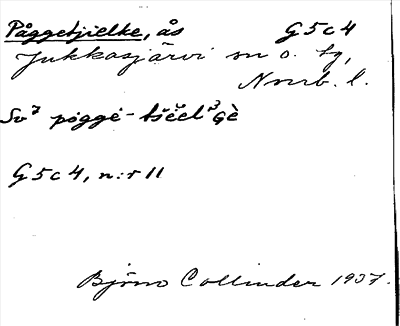 Påggetjielke, ås G5c4
Jukkasjärvi sn o. tg,
Nmrb. l.
Sv⁷ póggè-tšĕĕl³gè
G5c4, n:r 11
Björn Collinder 1937.